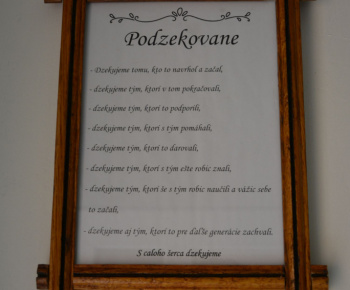 Podzekovane
- Dzekujeme tomu, kto to navrhol a začal,
- dzekujeme tým, ktorí v tom pokračovali,
- dzekujeme tým, ktorí to podporili,
- dzekujeme tým, ktorí s tým pomáhali,
- dzekujeme tým, ktorí to darovali,
- dzekujeme tým, ktorí s tým ešte robic znali,
- dzekujeme tým, ktorí še s tým robic naučili a vážic sebe
to začali,
- dzekujeme aj tým, ktorí to pre ďaľšie generácie zachvali.
S caloho šerca dzekujeme